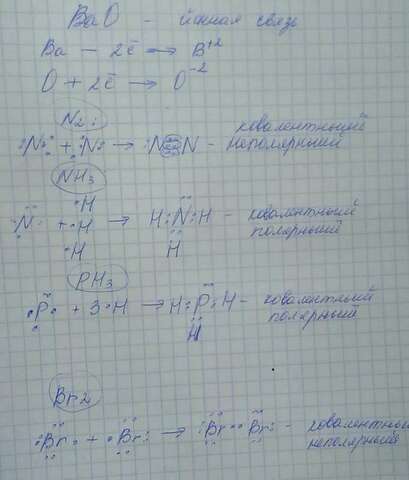 BaO - ионная связь
Ba - 2ē → B⁺²
O + 2ē → O⁻²
N2:
:N: + :N: → :N N - ковалентный неполярный
NH3
·H
:N· + ·H → H:N:H - ковалентный полярный
·H H
PH3
·P· + 3·H → H:P:H - ковалентный полярный
H
Br2
:Br· + ·Br: → :Br··Br: - ковалентный неполярный